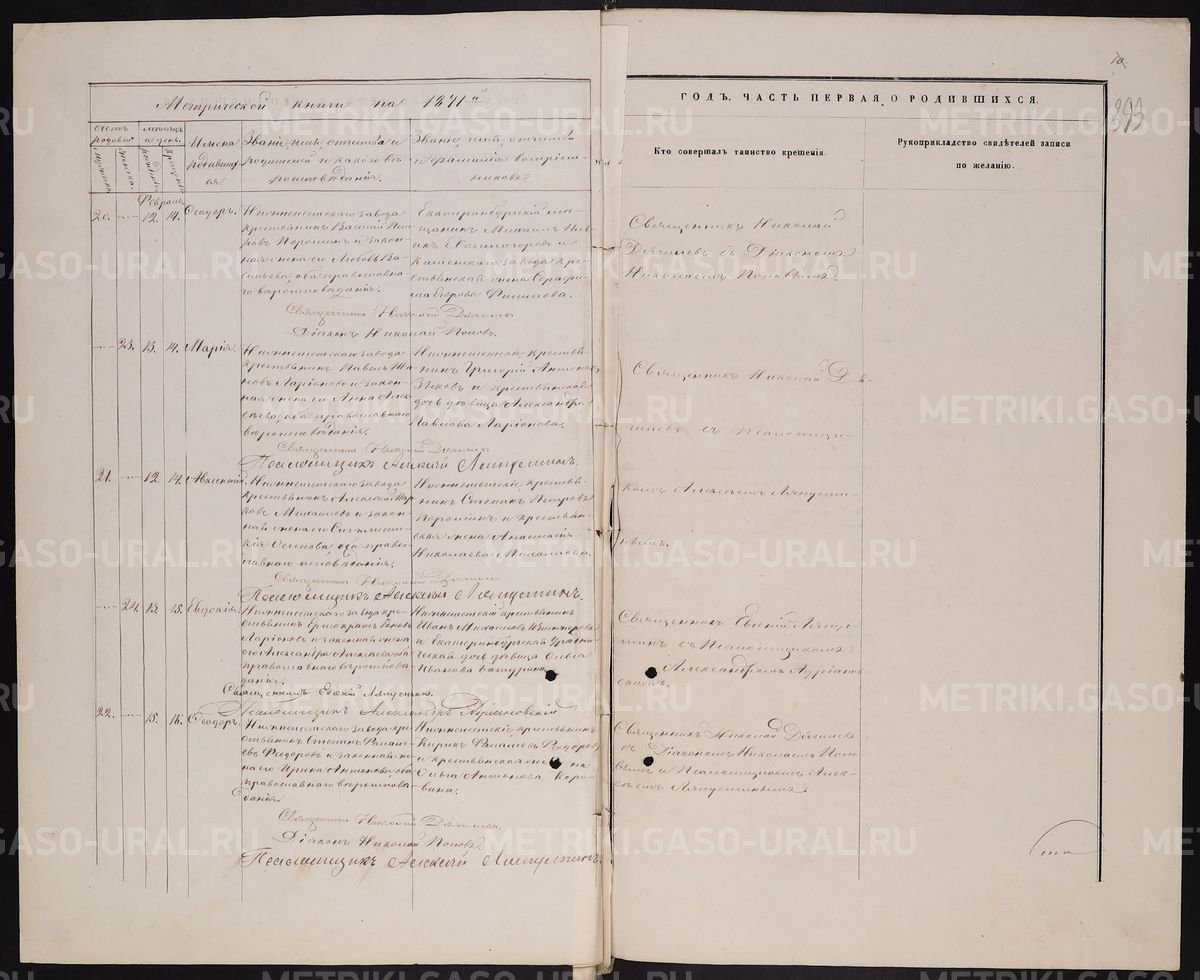 Метрической книги на 1871й
ГОДЪ. ЧАСТЬ ПЕРВАЯ, О РОДИВШИХСЯ.
393
Счетъ родив.
мужеска.
женска.
Мѣсяцъ и день.
рожденія
крещенія
Имена родившихся.
Званіе, имя, отчество и
родителей и какого вѣ-
роисповѣданія.
Званіе, имя, отчество
и фамилія воспріем-
никовъ.
Кто совершалъ таинство крещенія.
Рукоприкладство свидѣтелей записи
по желанію.
Февраль
20. 12. 14. Ѳеодоръ.
Нижнеисетскаго завода
крестьянинъ Василій Пет-
ровъ Порошинъ и закон-
ная жена его Любовь Ва-
сильева, оба православна-
го вѣроисповѣданія.
Екатеринбургскій мѣ-
щанинъ Михаилъ
и
Каменскаго завода кре-
стьянская жена Серафи-
ма Егорова Филипова.
Священникъ Николай
Дягилевъ съ Діакономъ
Николаемъ Поповымъ.
Священникъ Николай Дягилевъ
Діаконъ Николай Поповъ.
23. 13. 14. Марія.
Нижнеисетскаго завода
крестьянинъ Павелъ Ива-
новъ Ларіоновъ и закон-
ная жена его Анна Алек-
сѣева, оба православнаго
вѣроисповѣданія.
Нижнеисетскіе, крестья-
нинъ Григорій Антоновъ
Зыковъ и крестьянская
дочь дѣвица Александра
Павлова Ларіонова.
Священникъ Николай Дя-
гилевъ съ Псаломщи-
комъ Алексѣемъ Ляпусти-
нымъ.
Священникъ Николай Дягилевъ
Псаломщикъ Алексѣй Ляпустинъ.
21. 12. 14. Авксентій.
Нижнеисетскаго завода
крестьянинъ Алексѣй Мар-
ковъ Михайловъ и закон-
ная жена его Синклити-
кія Осипова, оба право-
славнаго исповѣданія.
Нижнеисетскіе, крестья-
нинъ Степанъ Петровъ
Порошинъ и крестьян-
ская жена Анастасія
Николаева Михайлова.
Священникъ Николай Дягилевъ
Псаломщикъ Алексѣй Ляпустинъ.
24. 13. 15. Евдокія.
Нижнеисетскаго завода кре-
стьянинъ Ермократъ
Ларіоновъ и законная жена
его Александра Алексѣева, оба
православнаго вѣроисповѣ-
данія.
Нижнеисетскій крестьянинъ
Иванъ Михаиловъ
и Екатеринбургская
дочь дѣвица Ольга
Иванова Батурина.
Священникъ Евгеній Ляпу-
стинъ съ Псаломщикомъ
Александромъ Адріанов-
скимъ.
Священникъ Евгеній Ляпустинъ.
Псаломщикъ Александръ Адріановскій
22. 15. 16. Ѳеодоръ.
Нижнеисетскаго завода кре-
стьянинъ Степанъ
Ѳеодоровъ и законная же-
на его Ирина Антонова, оба
православнаго вѣроисповѣ-
данія.
Нижнеисетскіе, крестьянинъ
Кирикъ Ѳеодоровъ
и крестьянская жена
Ольга Антонова Коро-
вина.
Священникъ Николай Дягилевъ
съ Діакономъ Николаемъ Попо-
вымъ и Псаломщикомъ Алек-
сѣемъ Ляпустинымъ.
Священникъ Николай Дягилевъ.
Діаконъ Николай Поповъ.
Псаломщикъ Алексѣй Ляпустинъ.
METRIKI.GASO-URAL.RU